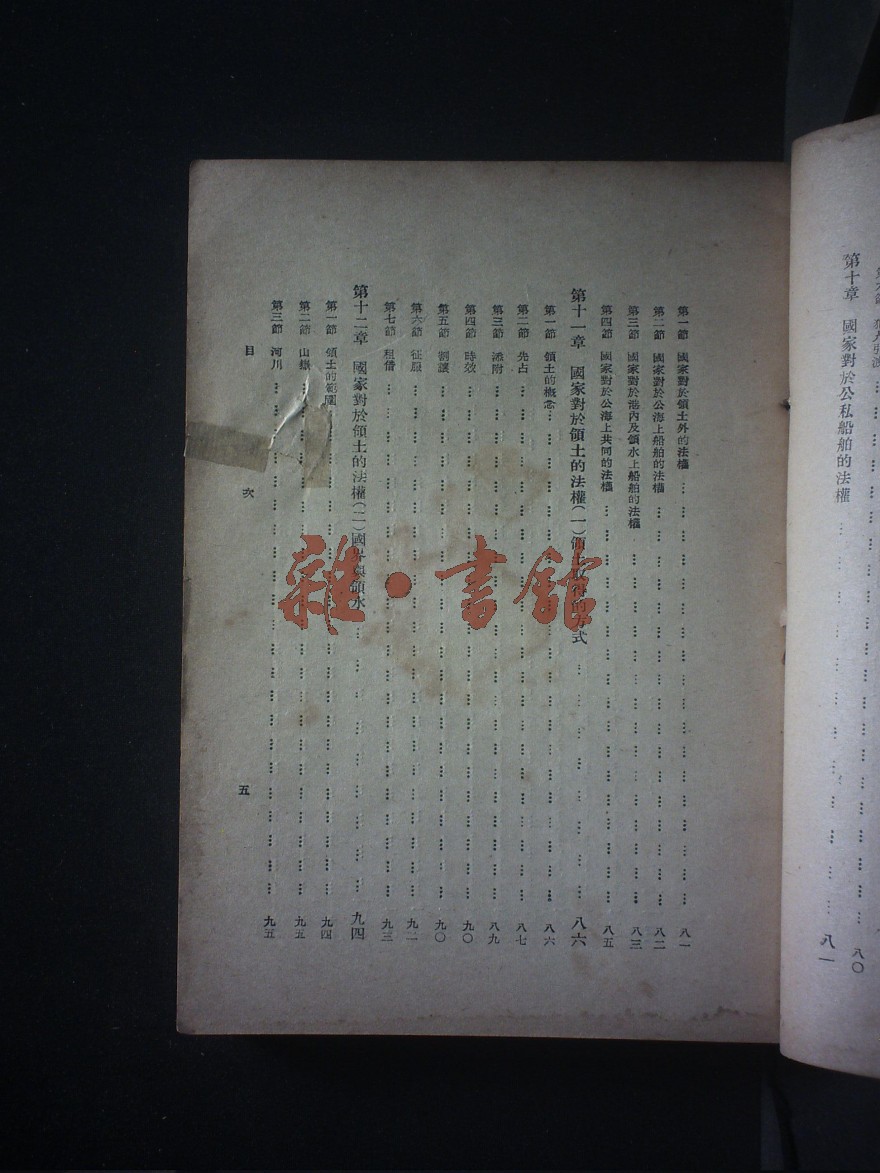 第十章 國家對於公私船舶的法權 … … … … … … … … … 八一
第一節 國家對於領土外的法權 … … … … … … … … … … … … … … … … 八一
第二節 國家對於公海上船舶的法權 … … … … … … … … … … … … … … … 八二
第三節 國家對於港內及領水上船舶的法權 … … … … … … … … … … … … … … 八三
第四節 國家對於公海上共同的法權 … … … … … … … … … … … … … … … 八五
第十一章 國家對於領土的法權(一)領土取得的方式 … … … … … … … … 八六
第一節 領土的概念 … … … … … … … … … … … … … … … … … … 八六
第二節 先占 … … … … … … … … … … … … … … … … … … … 八七
第三節 添附 … … … … … … … … … … … … … … … … … … … 八九
第四節 時效 … … … … … … … … … … … … … … … … … … … 九〇
第五節 割讓 … … … … … … … … … … … … … … … … … … … 九〇
第六節 征服 … … … … … … … … … … … … … … … … … … … 九二
第七節 租借 … … … … … … … … … … … … … … … … … … … 九三
第十二章 國家對於領土的法權(二)國界與領水 … … … … … … … … … 九四
第一節 領土的範圍 … … … … … … … … … … … … … … … … … 九四
第二節 山嶽 … … … … … … … … … … … … … … … … … … … 九五
第三節 河川 … … … … … … … … … … … … … … … … … … … 九五
目 次
五
雜·書館